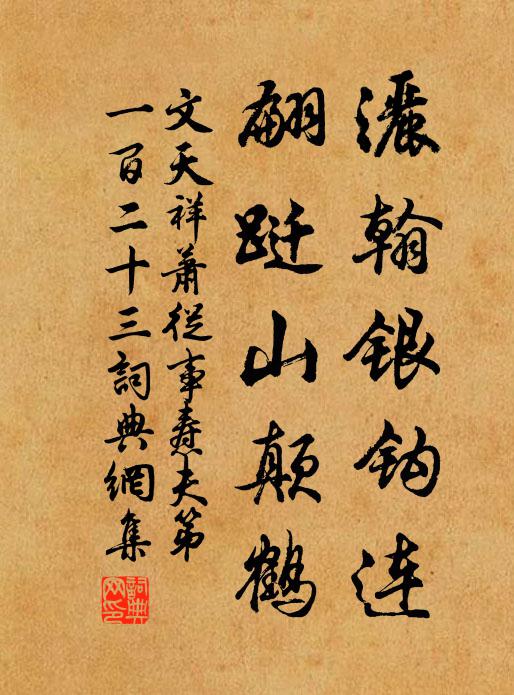 灑翰銀鈎連
翩跹山顛鶴
文天祥蕭從事燾夫第
一百二十三詞典網集
詞典网印